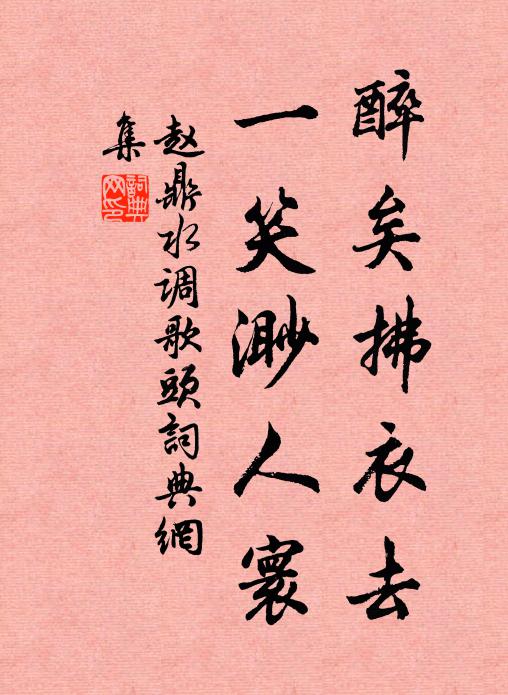 醉矣拂衣去
一笑渺人寰
赵鼎水调歌頭詞典網
集
詞典網印